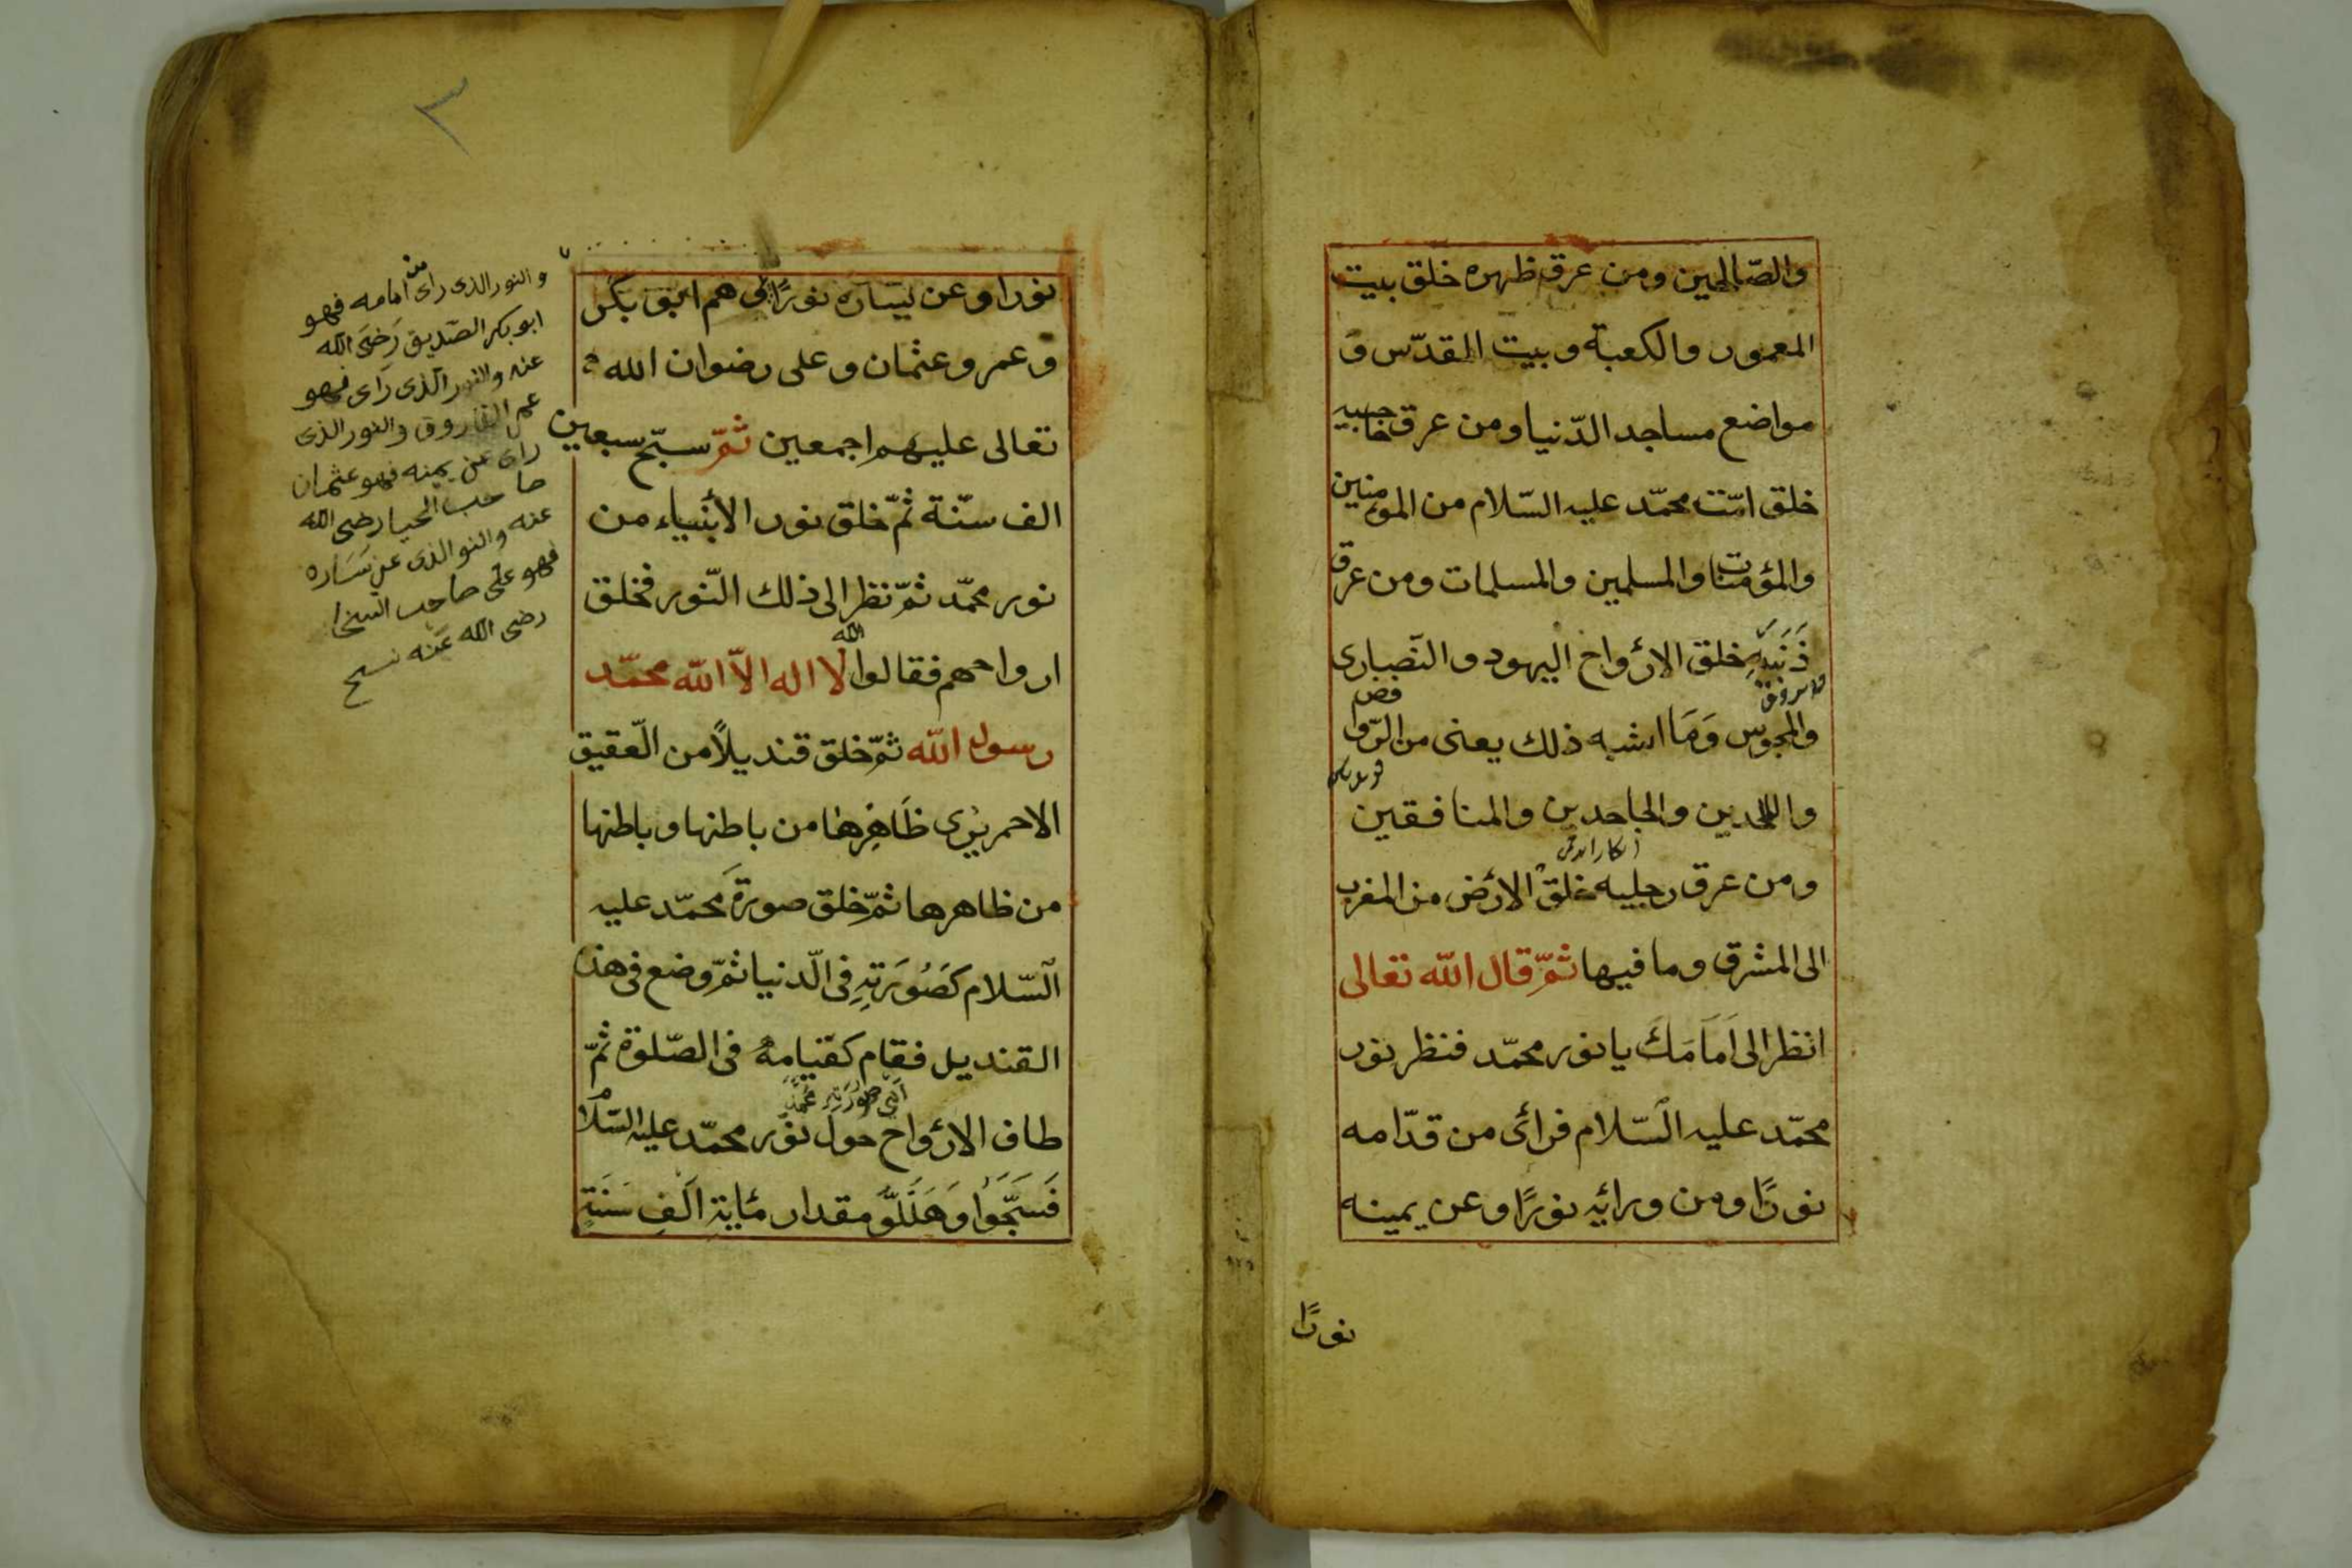 والصّالحين ومن عرق ظهره خلق بيت
المعمور والكعبة وبيت المقدّس و
مواضع مساجد الدّنيا ومن عرق حاجبيه
خلق امّت محمّد عليه السّلام من المؤمنين
والمؤمنات والمسلمين والمسلمات ومن عرق
ذَنَبِهِ خلق الارْواح اليهود والنّصارى
والمجوس وَمَا اشبه ذلك يعنى من الرّوافض
والملحدين والجاحدين والمنافقين
ومن عرق رجليه خلق الارْض من المغرب
الى المشرق وما فيها ثمّ قال الله تعالى
انظر الى اَمَامَكَ يا نور محمّد فنظر نور
محمّد عليه السّلام فرائى من قدّامه
نورًا ومن ورائِه نورًا وعن يمينه
نورًا
٣
نورا وعن يساره نورًا هم ابو بكر
وعمر وعثمان وعلى رضوان الله
تعالى عليهم اجمعين ثمّ سبّح سبعين
الف سنّة ثمّ خلق نور الأنبياء من
نور محمّد ثمّ نظر الى ذلك النّور فخلق
ارواحهم فقالوا لا اله الاّ الله محمّد
رسول الله ثمّ خلق قنديلاً من العقيق
الاحمر يرى ظَاهِرها من باطنها وباطنها
من ظاهرها ثمّ خلق صورة محمّد عليه
السّلام كَصُورَتِهِ فى الدّنيا ثمّ وضع فى هذا
القنديل فقام كقيامهُ فى الصّلوة ثمّ
اَىْ صُورَتِهِ مُحَمَّدْ
طاف الارْواح حول نور محمّد عليه السّلام
فَسَبَّحَوُا وَهَلَّلَوُّ مقدار مئاية اَلْفِ سَنَةٍ
والنور الذى راى من امامه فهو
ابو بكر الصّديق رَضىَ الله
عنه والنور الّذى رَاى فهو
عمر الفاروق والنور الذى
راى عن يمينه فهو عثمان
صاحب الحيا رضى الله
عنه والنو الذى عن يَسَاره
فهو على صاحب السخا
رضى الله عَنه نسح